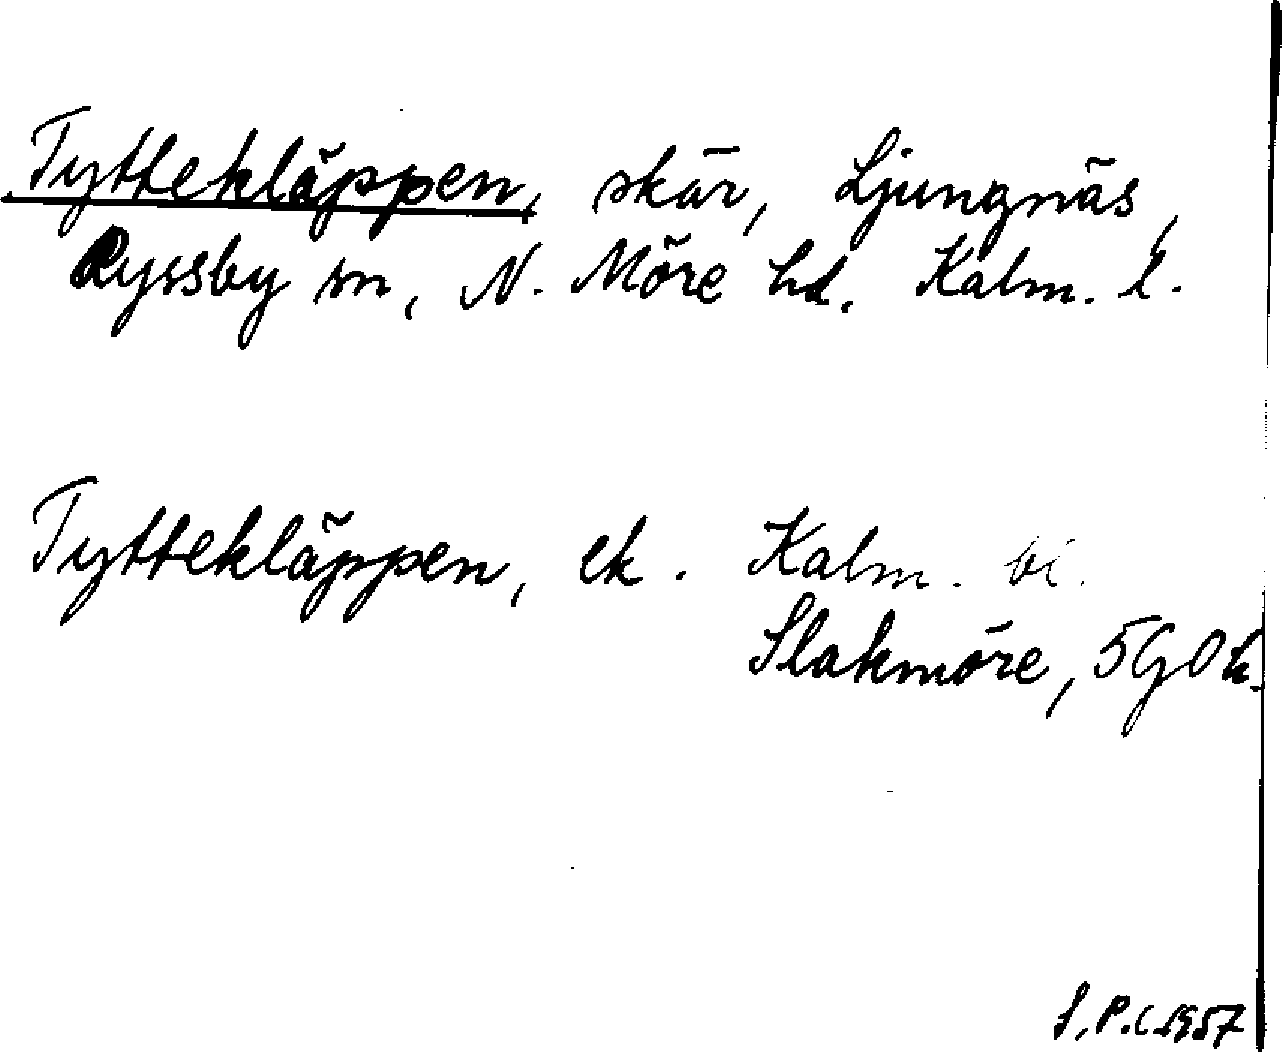 Tyttekläppen, skär, Ljungnäs,
Ryssby sn, N. Möre hd. Kalm. l.
Tyttekläppen, ek. Kalm. bi.
Slakmöre, 5G0h.
S.P.C. 1957